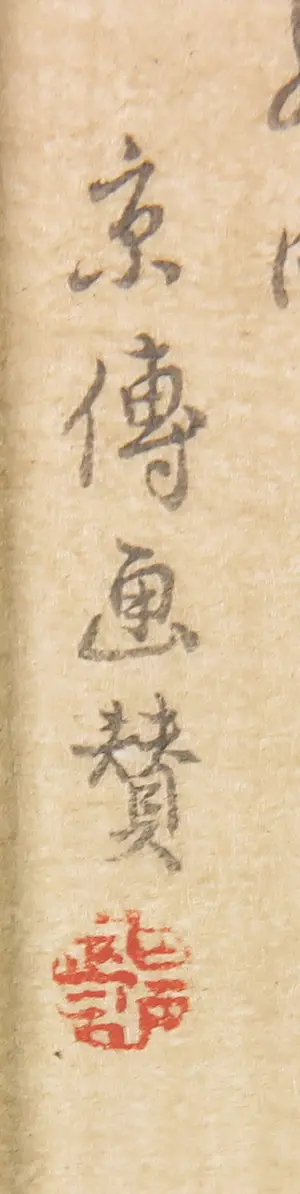 京傳画賛